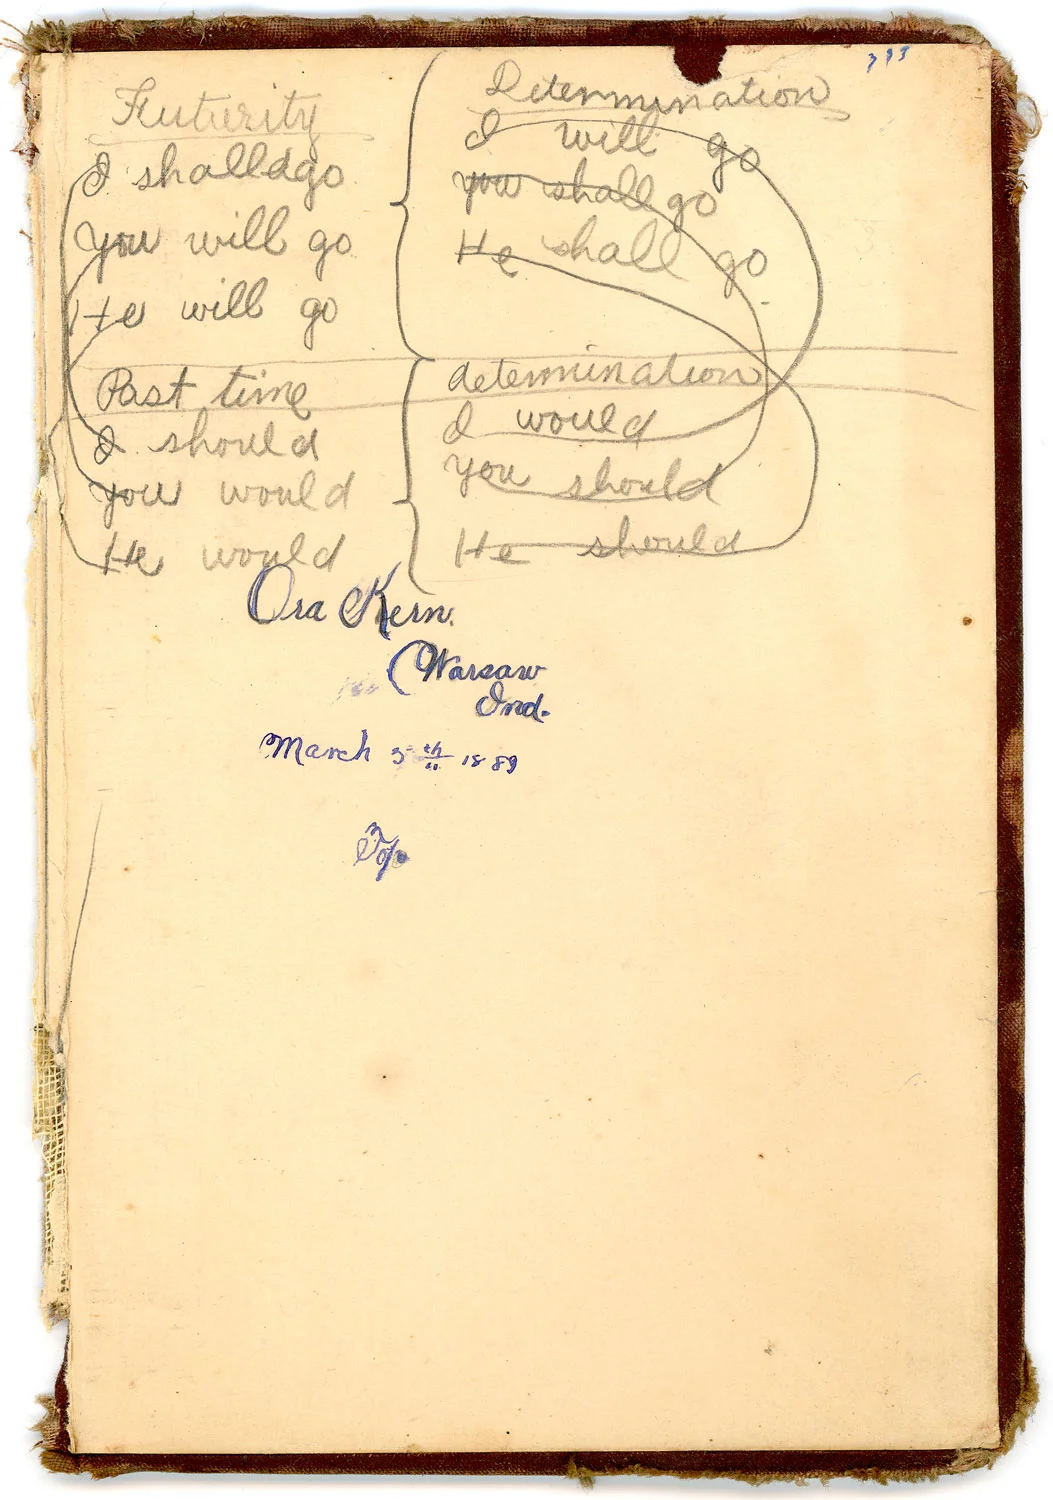 Futurity
I shall go
You will go
He will go
Determination
I will go
you shall go
He shall go
Past time
I should
you would
He would
determination
I would
you should
He should
Ora Kern.
(Warsaw
Ind.
March 5th 1889